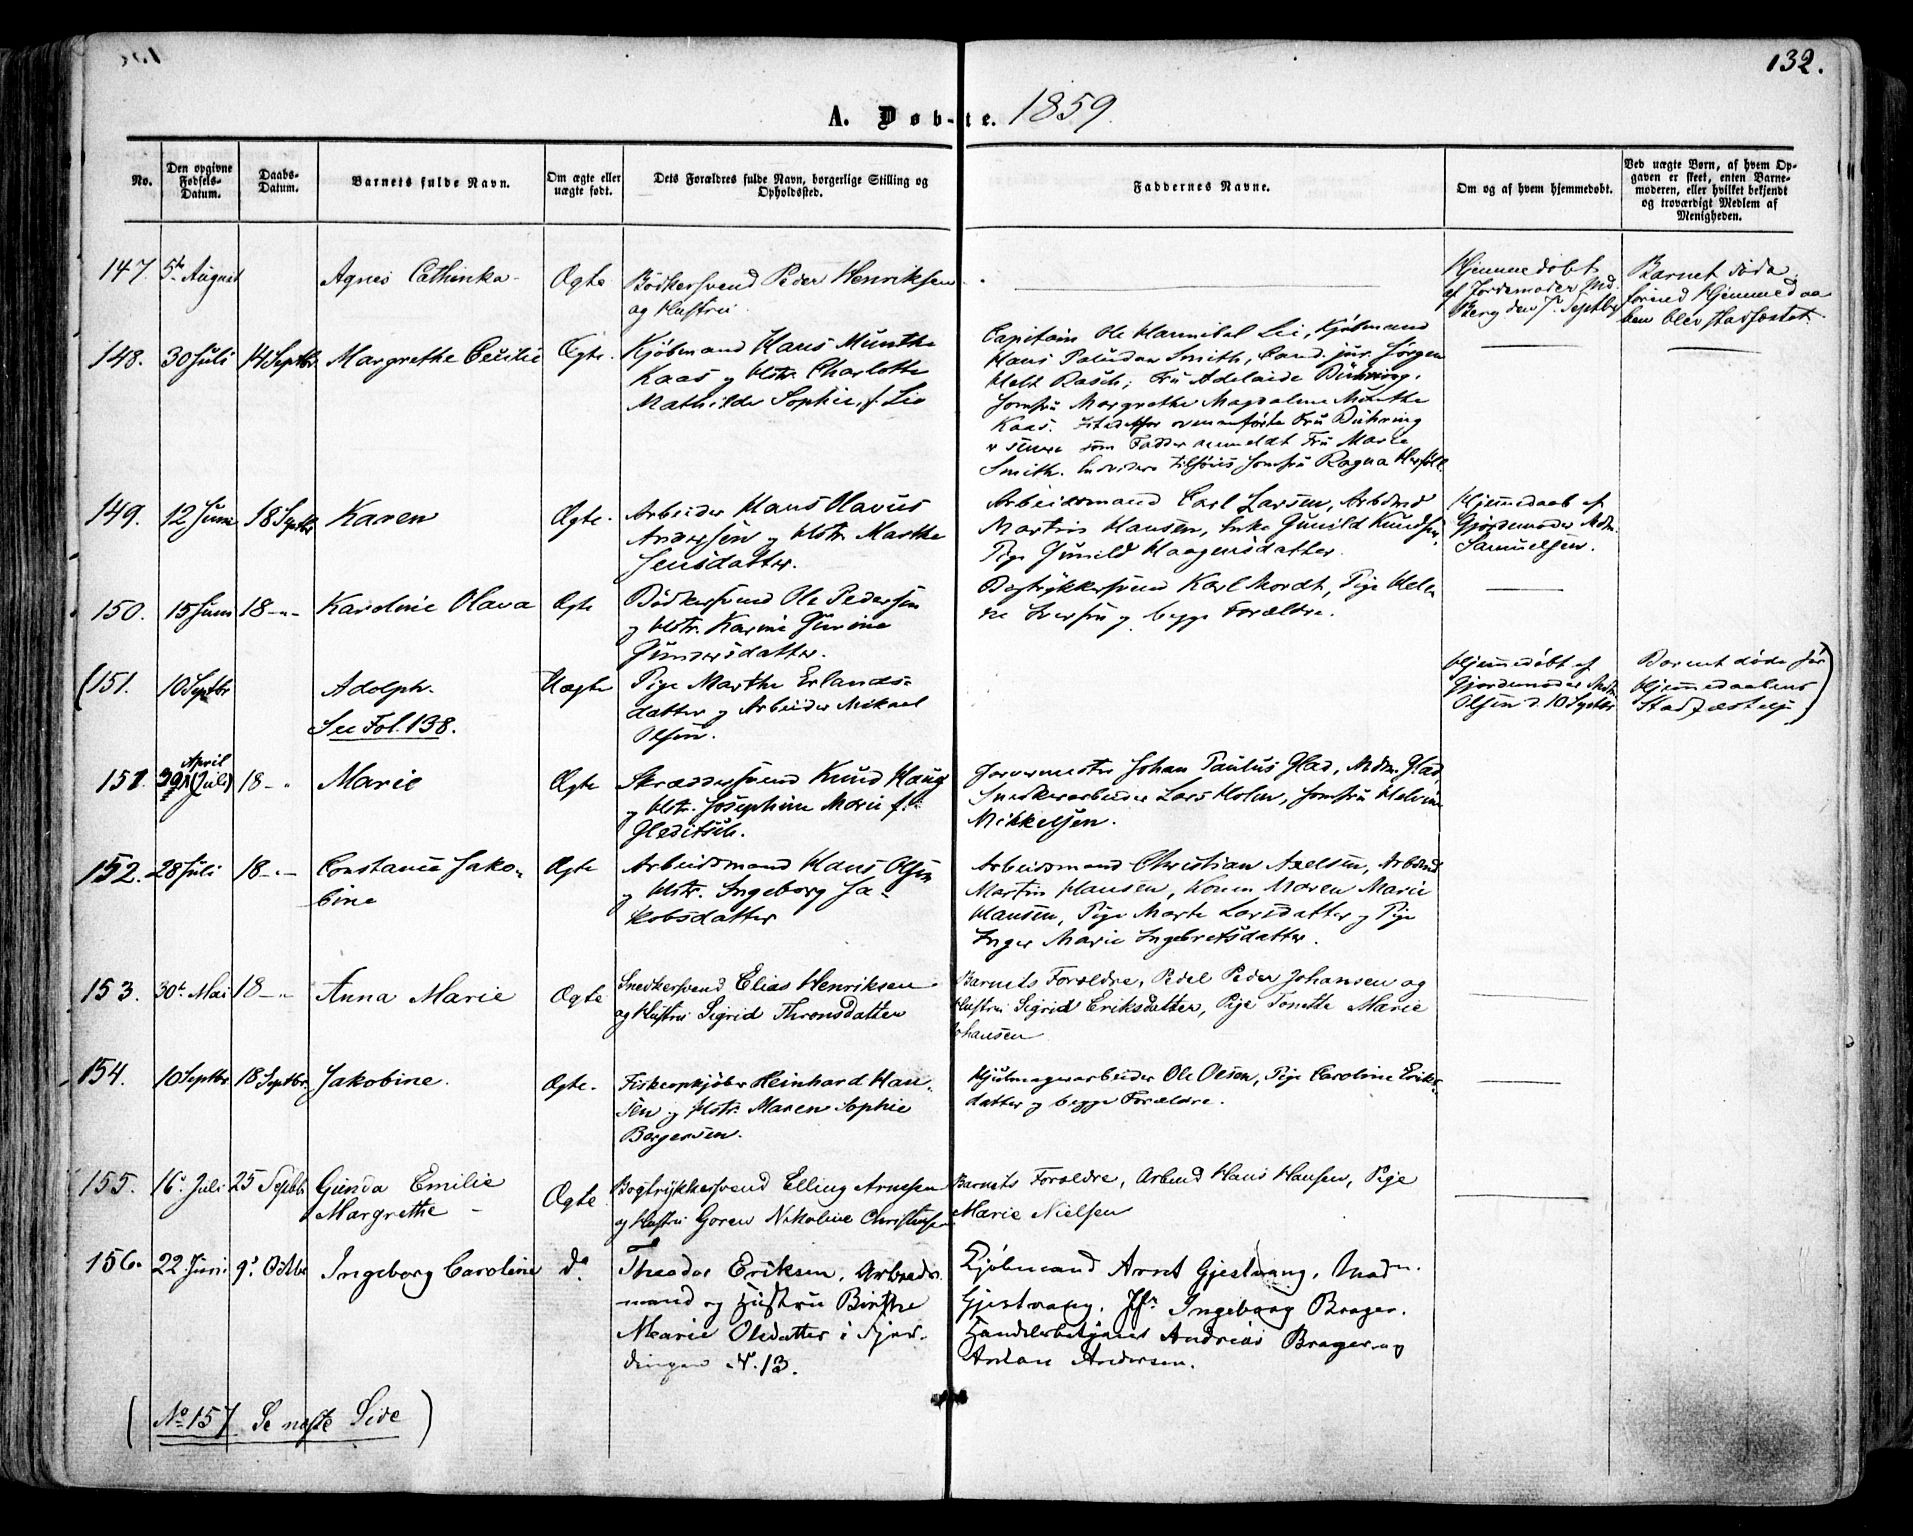 132.
A. Døb-te. 1859.
No.
Den opgivne Fødsels-Datum.
Daabs-Datum.
Barnets fulde Navn.
Om ægte eller uægte født.
Dets Forældres fulde Navn, borgerlige Stilling og Opholdssted.
Faddernes Navne.
Om og af hvem hjemmedøbt.
Ved uægte Børn, af hvem Op-
gaven er skeet, enten Barne-
moderen, eller hvilket bekjendt
og troværdigt Medlem af
Menigheden.
147. 5te August Agnes Cathinka Ægte
Bødkersvend Peder Henriksen
og Hustru
Hjemmedøbt
af Jordemoder Md.
Berg den 7. Septbr
Barnet døde
forind Hjemmedaa
ben blev stadfæstet.
148. 30 Juli 14 Septbr. Margrethe Cecilie Ægte.
Kjøbmand Hans Munthe
Kaas og Hstr. Charlotte
Mathilde Sophie, f. Lie
Capitain Ole Hannibal Lie, Kjøbmand
Hans Paludan Smith, Cand. jur. Jørgen
Helt Rasch, Fru Adelaide Bühring,
Jomfru Margrethe Magdalene Munthe
Kaas. Istedetfor ovenanførte Fru Bühring
er senere som Fadder anmeldt Fru Marie
Smith. Endvidere tilføies Jomfru Ragna
149. 12 Juni 18 Septbr. Karen Ægte.
Arbeider Hans Olavus
Andersen og Hstr. Marthe
Jensdatter.
Arbeidsmand Carl Larsen, Arbdsmd
Martin Hansen, Enke Gunild Knudsen,
Pige Gunild Haagensdatter.
Hjemmedaab af
Gjordemoder Mdm.
Samuelsen.
150. 15 Juni 18 - " - Karoline Olava Ægte
Bødkersvend Ole Pedersen
og Hstr. Karine Gurine
Gundersdatter.
Bogtrykkersvend Karl Mordt, Pige Hele
ne Iversen og begge Forældre.
(151. 10 Septbr Adolph. Uægte
See Fol. 138.
Pige Marthe Erlands-
datter og Arbeider Mikael
Olsen.
Hjemmedøbt af
Gjordemoder Mdm.
Olsen d. 10 Septbr
Barnet døde før
Hjemmedaabens
Stadfæstelse)
151. 29 April (Juli) 18 - " Marie Ægte
Skræddersvend Knud Haug
og Hstr. Josephine Marie f.
Gleditsch.
Farvermester Johan Paulus Glad, Mdm. Glad,
Snedkerarbeider Lars Holm, Jomfru Helvine
Mikkelsen.
152. 28 Juli 18 - " - Constance Jako-
bine Ægte
Arbeidsmand Hans Olsen
og Hstr. Ingeborg Ja-
kobsdatter
Arbeidsmand Christian Axelsen, Arbdsmd
Martin Hansen, Konen Maren Marie
Hansen, Pige Marte Larsdatter og Pige
Inger Marie Ingebretsdatter.
153. 30t. Mai 18 - " Anna Marie Ægte
Snedkersvend Elias Henriksen
og Hustru Sigrid Thronsdatter
Barnets Forældre, Pedel Peder Johansen og
Hustru Sigrid Eriksdatter, Pige Tonette Marie
Johansen
154. 10 Septbr 18 Septbr. Jakobine. Ægte.
Fiskeopkjøber Reinhard Han-
sen og Hstr. Maren Sophie
Borgersen.
Hjulmagerarbeider Ole Olsen, Pige Caroline Eriks-
datter og begge Forældre.
155. 16. Juli 25 Septbr Gunda Emilie
Margrethe - Ægte
Bogtrykkersvend Elling Arnesen
og Hustru Goren Nikoline Christensen
Barnets Forældre, Arbmd Hans Hansen, Pige
Marie Nielsen
156. 22 Juni 9. Octbr Ingeborg Caroline do.
Theodor Eriksen, Arbeids-
mand og Hustru Birthe
Marie Olsdatter i Fjer-
dingen N. 13.
Kjøbmand Arnt Gjestvang, Madm.
Gjestvang, Jfr. Ingeborg Brager.
Handelsbetjent Andreas Brager og
Anton Andersen.
(No. 157 Se næste Side)